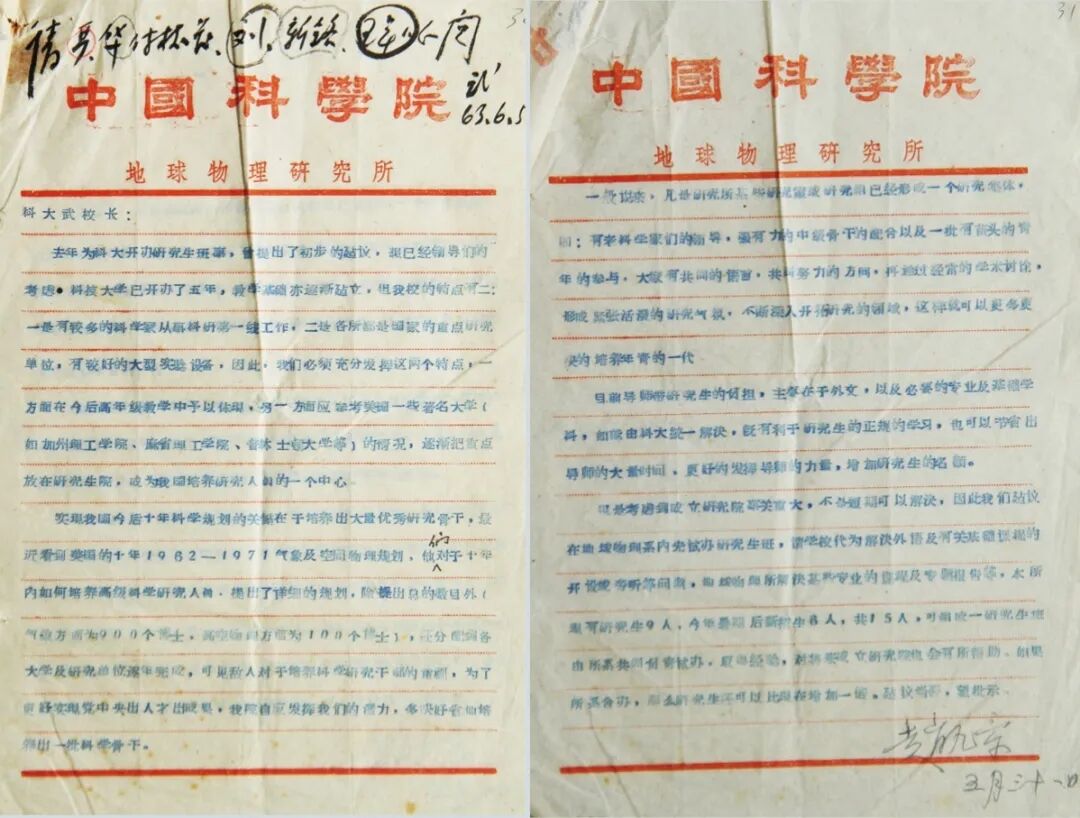 31
请
刘
新铭
63.6.5
中國科學院
地球物理研究所
科大武校长：
去年为科大开办研究生班事，曾提出了初步的建议，想已经领导们的
考虑。科技大学已开办了五年，教学基础亦逐渐建立，但我校的特点有二：
一是有较多的科学家从事科研第一线工作，二是各所都是国家的重点研究
单位，有较好的大型实验设备，因此，我们必须充分发挥这两个特点，一
方面在今后高年级教学中予以体现，另一方面应参考美国一些著名大学（
如加州理工学院、麻省理工学院、普林士顿大学等）的情况，逐渐把重点
放在研究生院，成为我国培养研究人员的一个中心。
实现我国今后十年科学规划的关键在于培养出大量优秀研究骨干，最
近看到美国的十年1962—1971气象及空间物理规划，他们对于十年
内如何培养高级科学研究人员，提出了详细的规划，除提出总的数目外（
气象方面为900个博士，高空物理方面为100个博士），还分配到各
大学及研究单位逐年完成，可见敌人对于培养科学研究干部的重视，为了
更好实现党中央出人才出成果，我院自应发挥我们的潜力，多快好省地培
养出一批科学骨干。
31
中國科學院
地球物理研究所
一般说来，凡是研究所某些研究室或研究组已经形成一个研究集体，
如：有老科学家们的领导，强有力的中级骨干的配合以及一批有苗头的青
年的参与，大家有共同的语言，共同努力的方向，再通过经常的学术讨论，
形成紧张活泼的研究气氛，不断深入开拓研究的领域，这样就可以更多更
快的培养年青的一代
目前导师带研究生的负担，主要在于外文，以及必要的专业及基础学
科，如能由科大统一解决，既有利于研究生的正规的学习，也可以节省出
导师的大量时间、更好的发挥导师的力量，增加研究生的名额。
但是考虑到成立研究院事关重大，不是短期可以解决，因此我们建议
在地球物理系内先试办研究生班，请学校代为解决外语及有关基础课程的
开设或旁听等问题，地球物理所解决某些专业的课程及专题报告等，本所
现有研究生9人，今年暑期后新招生6人，共15人，可组成一研究生班
由所系共同负责试办，取得经验，对将来成立研究院也会有所帮助、如果
所系合办，那么研究生还可以比现在增加一倍。建议当否，望批示、
赵九章
五月三十一日